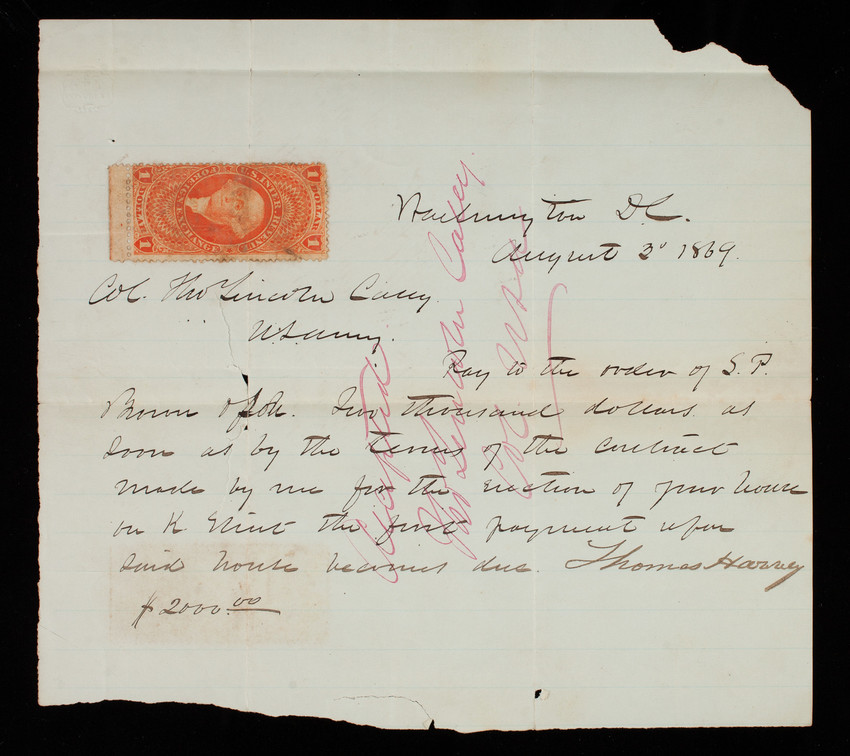 U.S. INTER. REVENUE
FOREIGN EXCHANGE
1 DOLLAR 1
1 DOLLAR 1
Washington D.C.
August 3d 1869.
Col. Tho Lincoln Casey
U.S. Army.
Pay to the order of S. P.
Brown & Son. Two thousand dollars, as
soon as by the terms of the contract
made by me for the erection of your house
on K Street the first payment upon
said house becomes due. Thomas Harvey
$2000.00
Accepted
Tho Lincoln Casey
Col USA